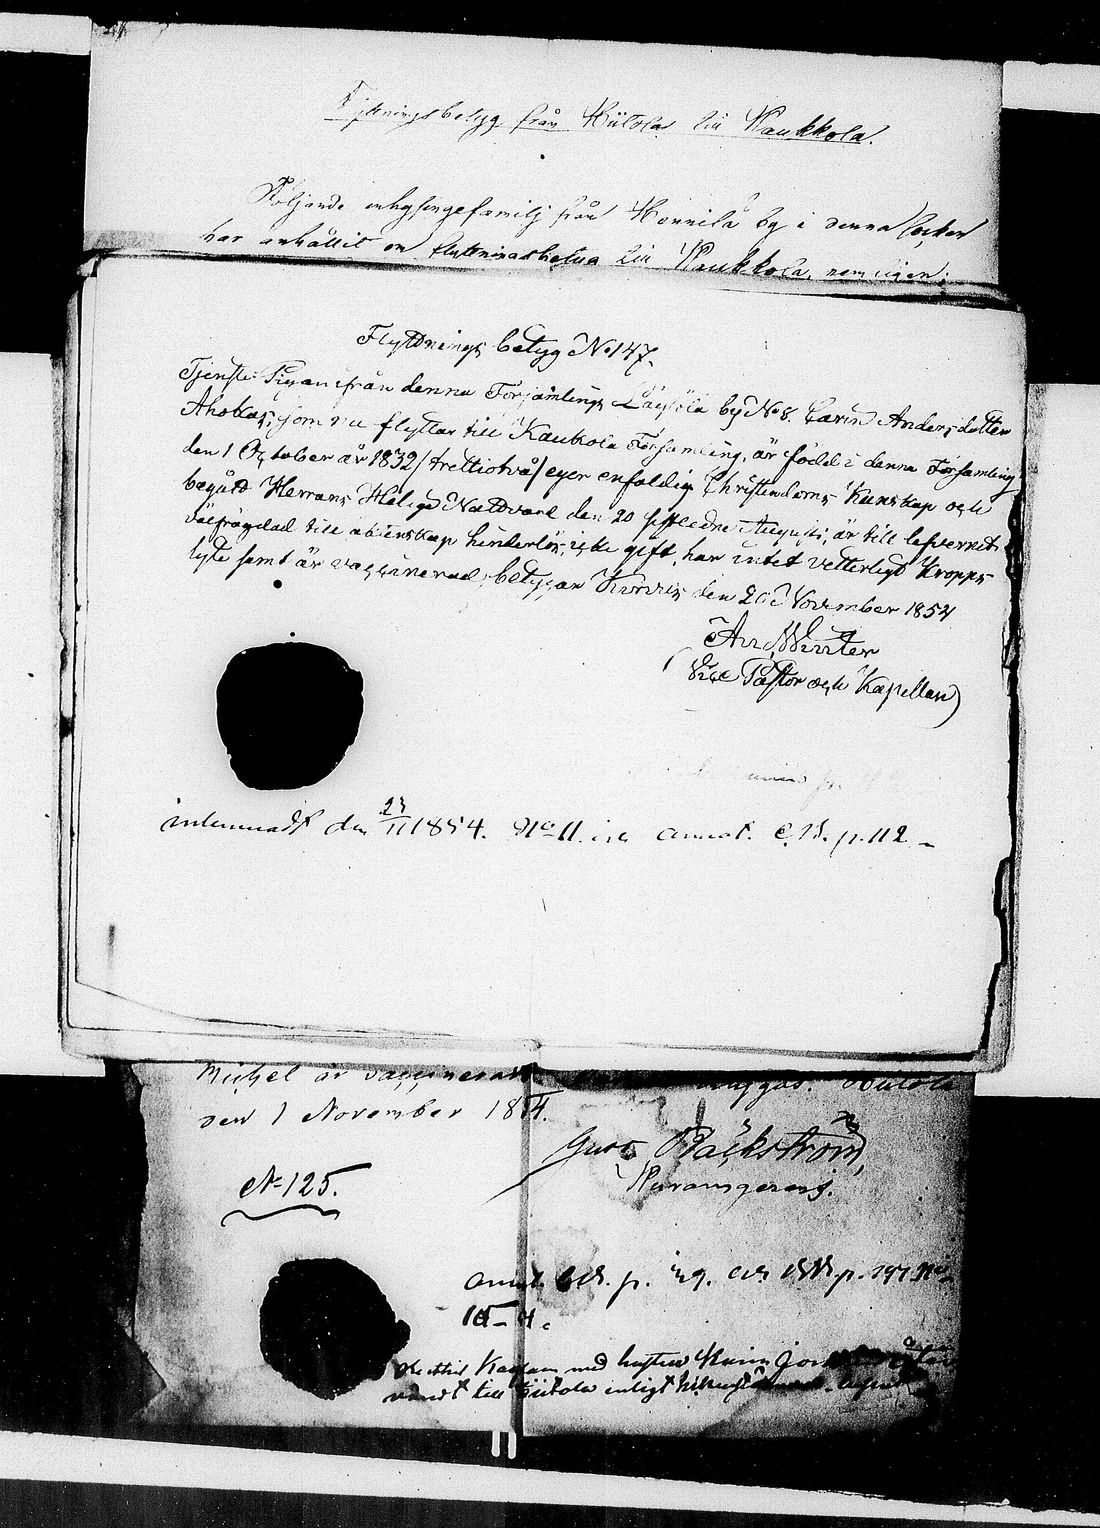 Flyttningsbetyg från Hiitola till Kaukkola.
Följande inhysingefamilj från Hennilä by i denna socken
har anhållit om flyttningsbetyg till Kaukkola, nemligen:
Flyttnings betyg No 147.
Tjenste Pigan ifrån denna Församlings by No 8. Carin Anders dotter
Ahokas, som nu flyttar till Kaukola Församling, är född i denna Församling
den 1 October år 1832 /trettiotvå/ eger enfaldig Christendoms Kunskap och
begått Herrans Heliga Nattvard den 20 sistledne Augusti, är till lefvernet
till äktenskap hinderlös, icke gift, har intet vetterligt Kropps-
lyte samt är vaccinerad; betygar Kurvis den 20 November 1854
And. Winter
(Vice Pastor och Kapellan)
inlemnadt den 23/11 1854. No 11. annot. C.B. p. 112
Michel är vaccinerad Hiitola
den 1 November 1854.
Gust. Bäckström
No 125.
annot. C.B. p.
med hustru
till Hiitola enligt